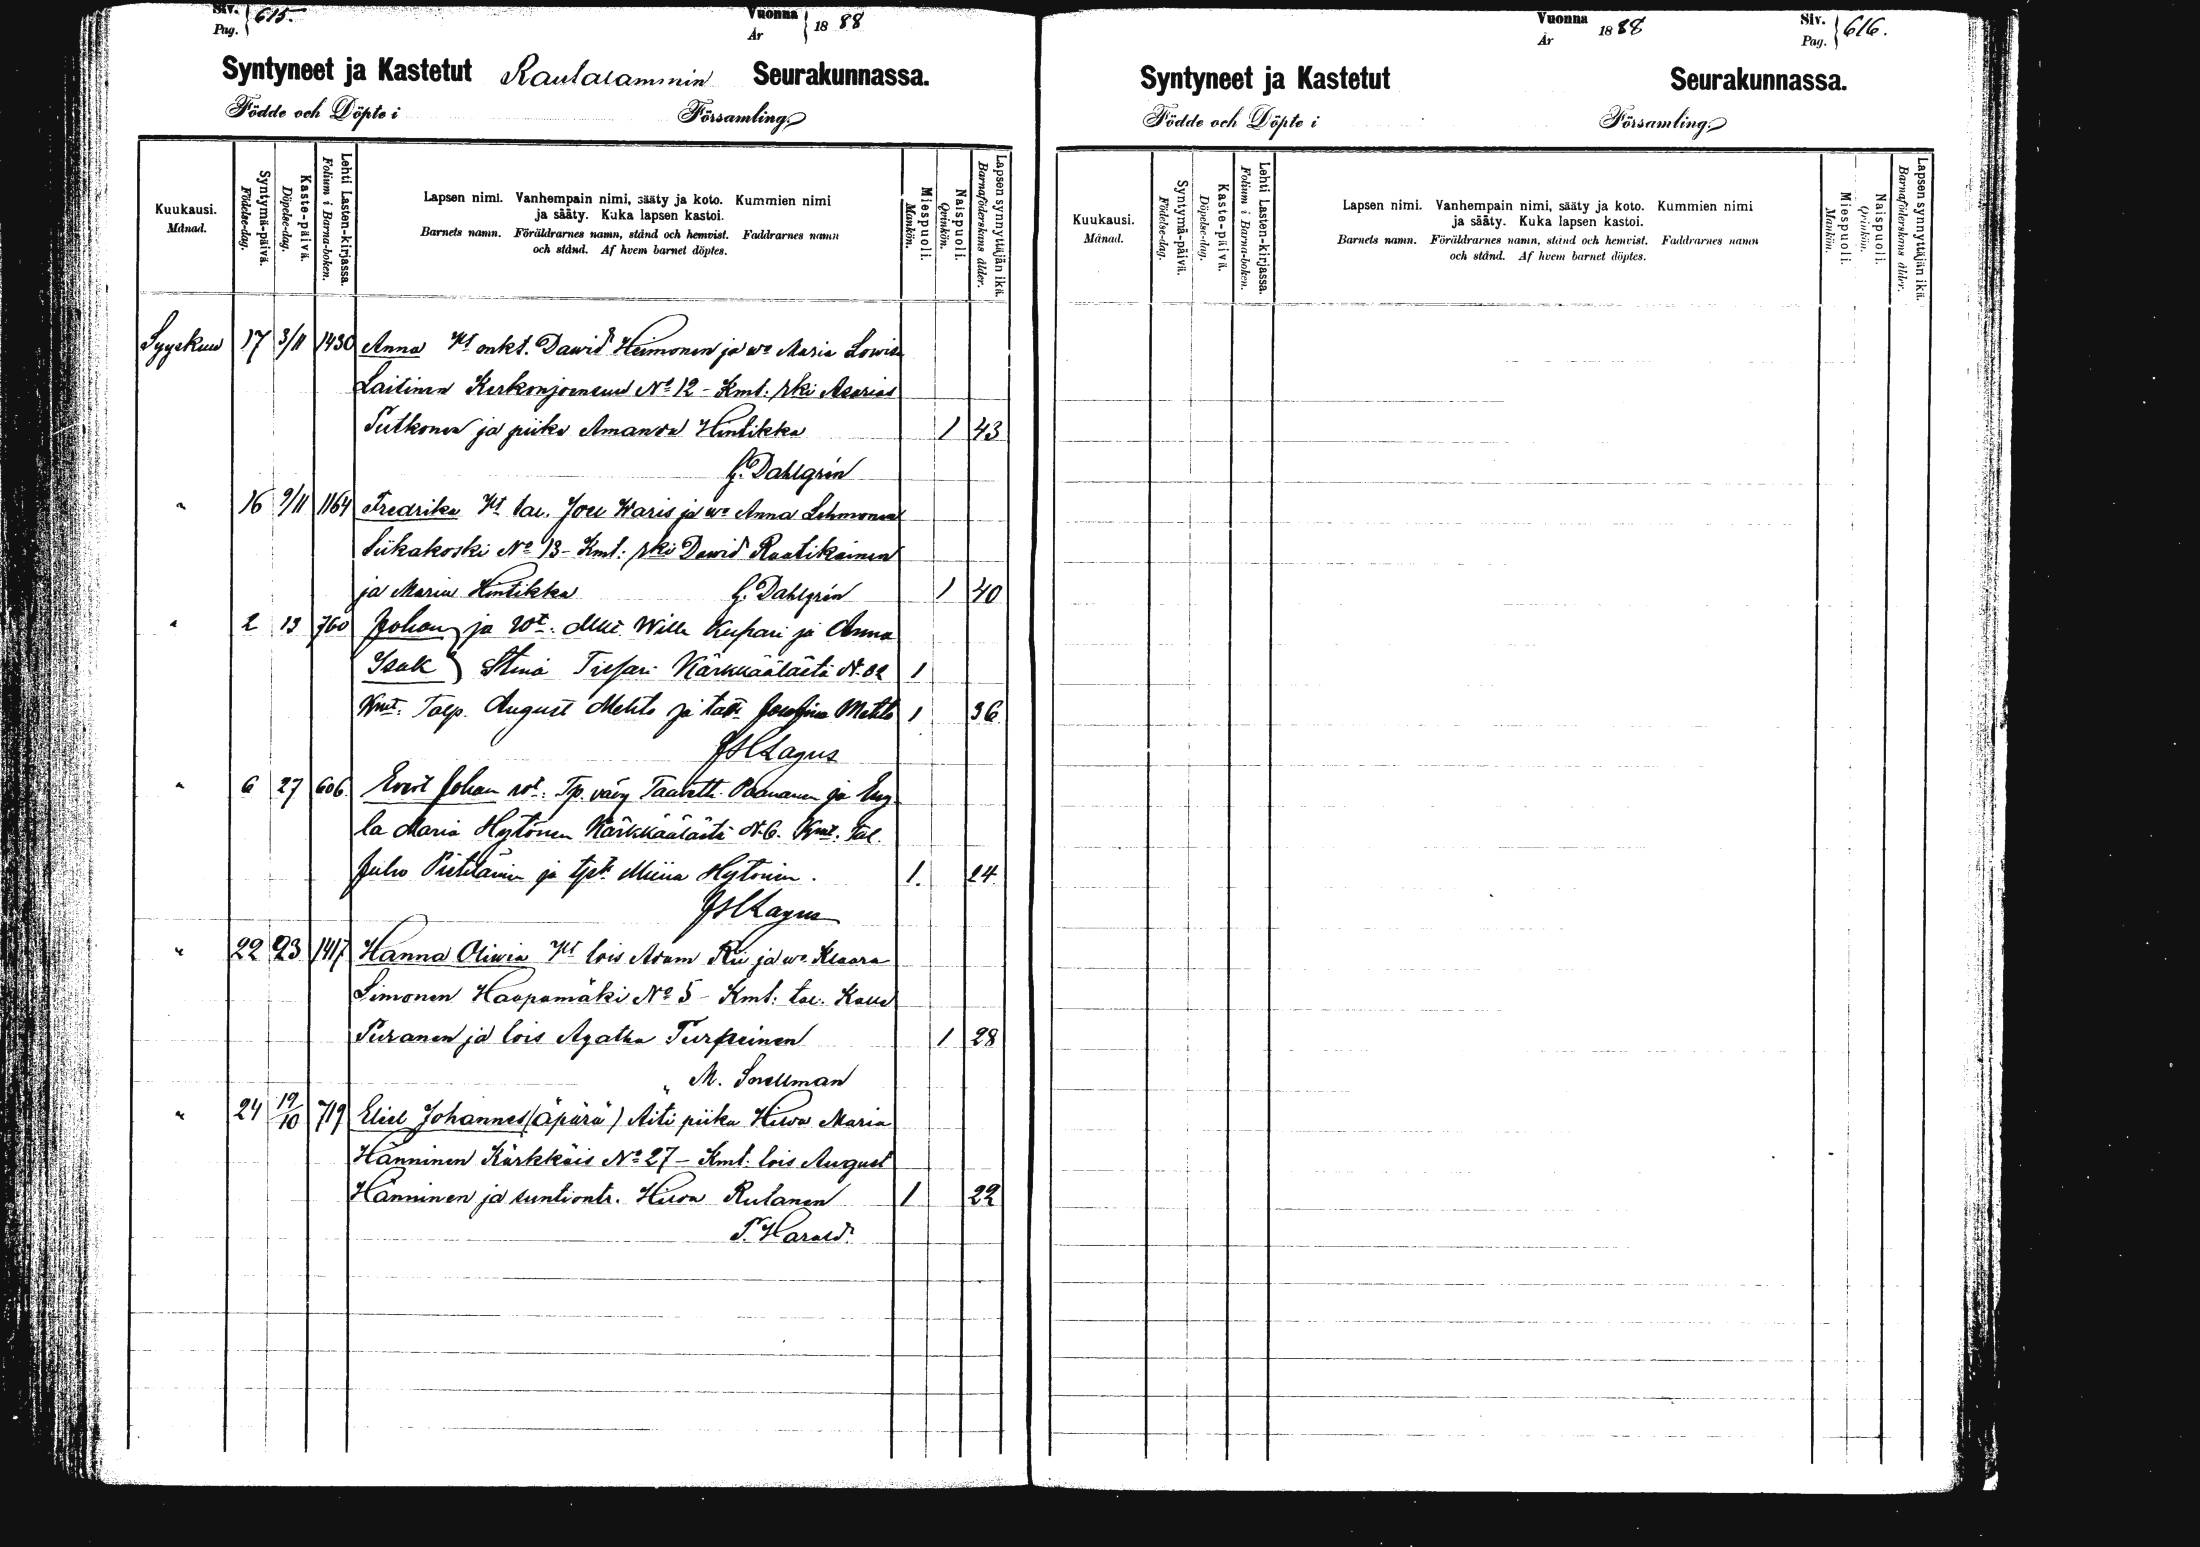 Siv. 615.
Pag.
Vuonna 1888
År
Syntyneet ja Kastetut Rautalammin Seurakunnassa.
Födde och Döpte i Församling.
Kuukausi.
Månad.
Syntymä-päivä.
Födelse-dag.
Kaste-päivä.
Döpelse-dag.
Lehti Lasten-kirjassa.
Folium i Barna-boken.
Lapsen nimi. Vanhempain nimi, sääty ja koto. Kummien nimi
ja sääty. Kuka lapsen kastoi.
Barnets namn. Föräldrarnes namn, stånd och hemvist. Faddrarnes namn
och stånd. Af hvem barnet döptes.
Miespuoli.
Mankön.
Naispuoli.
Qvinkön.
Lapsen synnyttäjän ikä.
Barnaföderskans ålder.
Syyskuu 17 3/11 1430 Anna Wt onkt. Dawid Heimonen ja wo Maria Lowisa
Laitinen Kerkonjoensuu No 12 - Kmt: rki Asarias
Putkonen ja piika Amanda Hintikka 1 43
G. Dahlgrén
" 16 9/11 1164 Fredrika Wt tal. Joel Karis ja wo Anna Lehmonen
Siikakoski No 13 - Kmt: rki Dawid Raatikainen
ja Maria Hintikka G. Dahlgrén 1 40
" 2 13 760 Johan ja Wt: Wille Kupari ja Anna
Isak Stina Kärkkäälästä N.
Kmt. August Mehto ja Josefina Mehto 1 36
JHLagus
" 6 27 606 Evert Johan Wt: Tp. väv Taavetti Paananen ja Eng
la Maria Hytönen Kärkkäälästä N. 6. Kmt. Tal.
Juho Pietiläinen ja Miina Hytönen. 1. 24
JHLagus
" 22 23 1417 Hanna Oliwia Wt lois Adam Rii ja wo Klaara
Simonen Haapamäki No 5 - Kmt: tal. Kalle
Puranen ja lois Agatha Turpeinen 1 28
M. Snellman
" 24 19/10 719 Eliel Johannes (äpärä) Äiti piika Hilda Maria
Hänninen Kärkkäis No 27 - Kmt: lois August
Hänninen ja suntiontr. Hilda Rutanen 1 22
P. Harald.
Vuonna 1888
År
Siv. 616.
Pag.
Syntyneet ja Kastetut Seurakunnassa.
Födde och Döpte i Församling.
Kuukausi.
Månad.
Syntymä-päivä.
Födelse-dag.
Kaste-päivä.
Döpelse-dag.
Lehti Lasten-kirjassa.
Folium i Barna-boken.
Lapsen nimi. Vanhempain nimi, sääty ja koto. Kummien nimi
ja sääty. Kuka lapsen kastoi.
Barnets namn. Föräldrarnes namn, stånd och hemvist. Faddrarnes namn
och stånd. Af hvem barnet döptes.
Miespuoli.
Mankön.
Naispuoli.
Qvinkön.
Lapsen synnyttäjän ikä.
Barnaföderskans ålder.